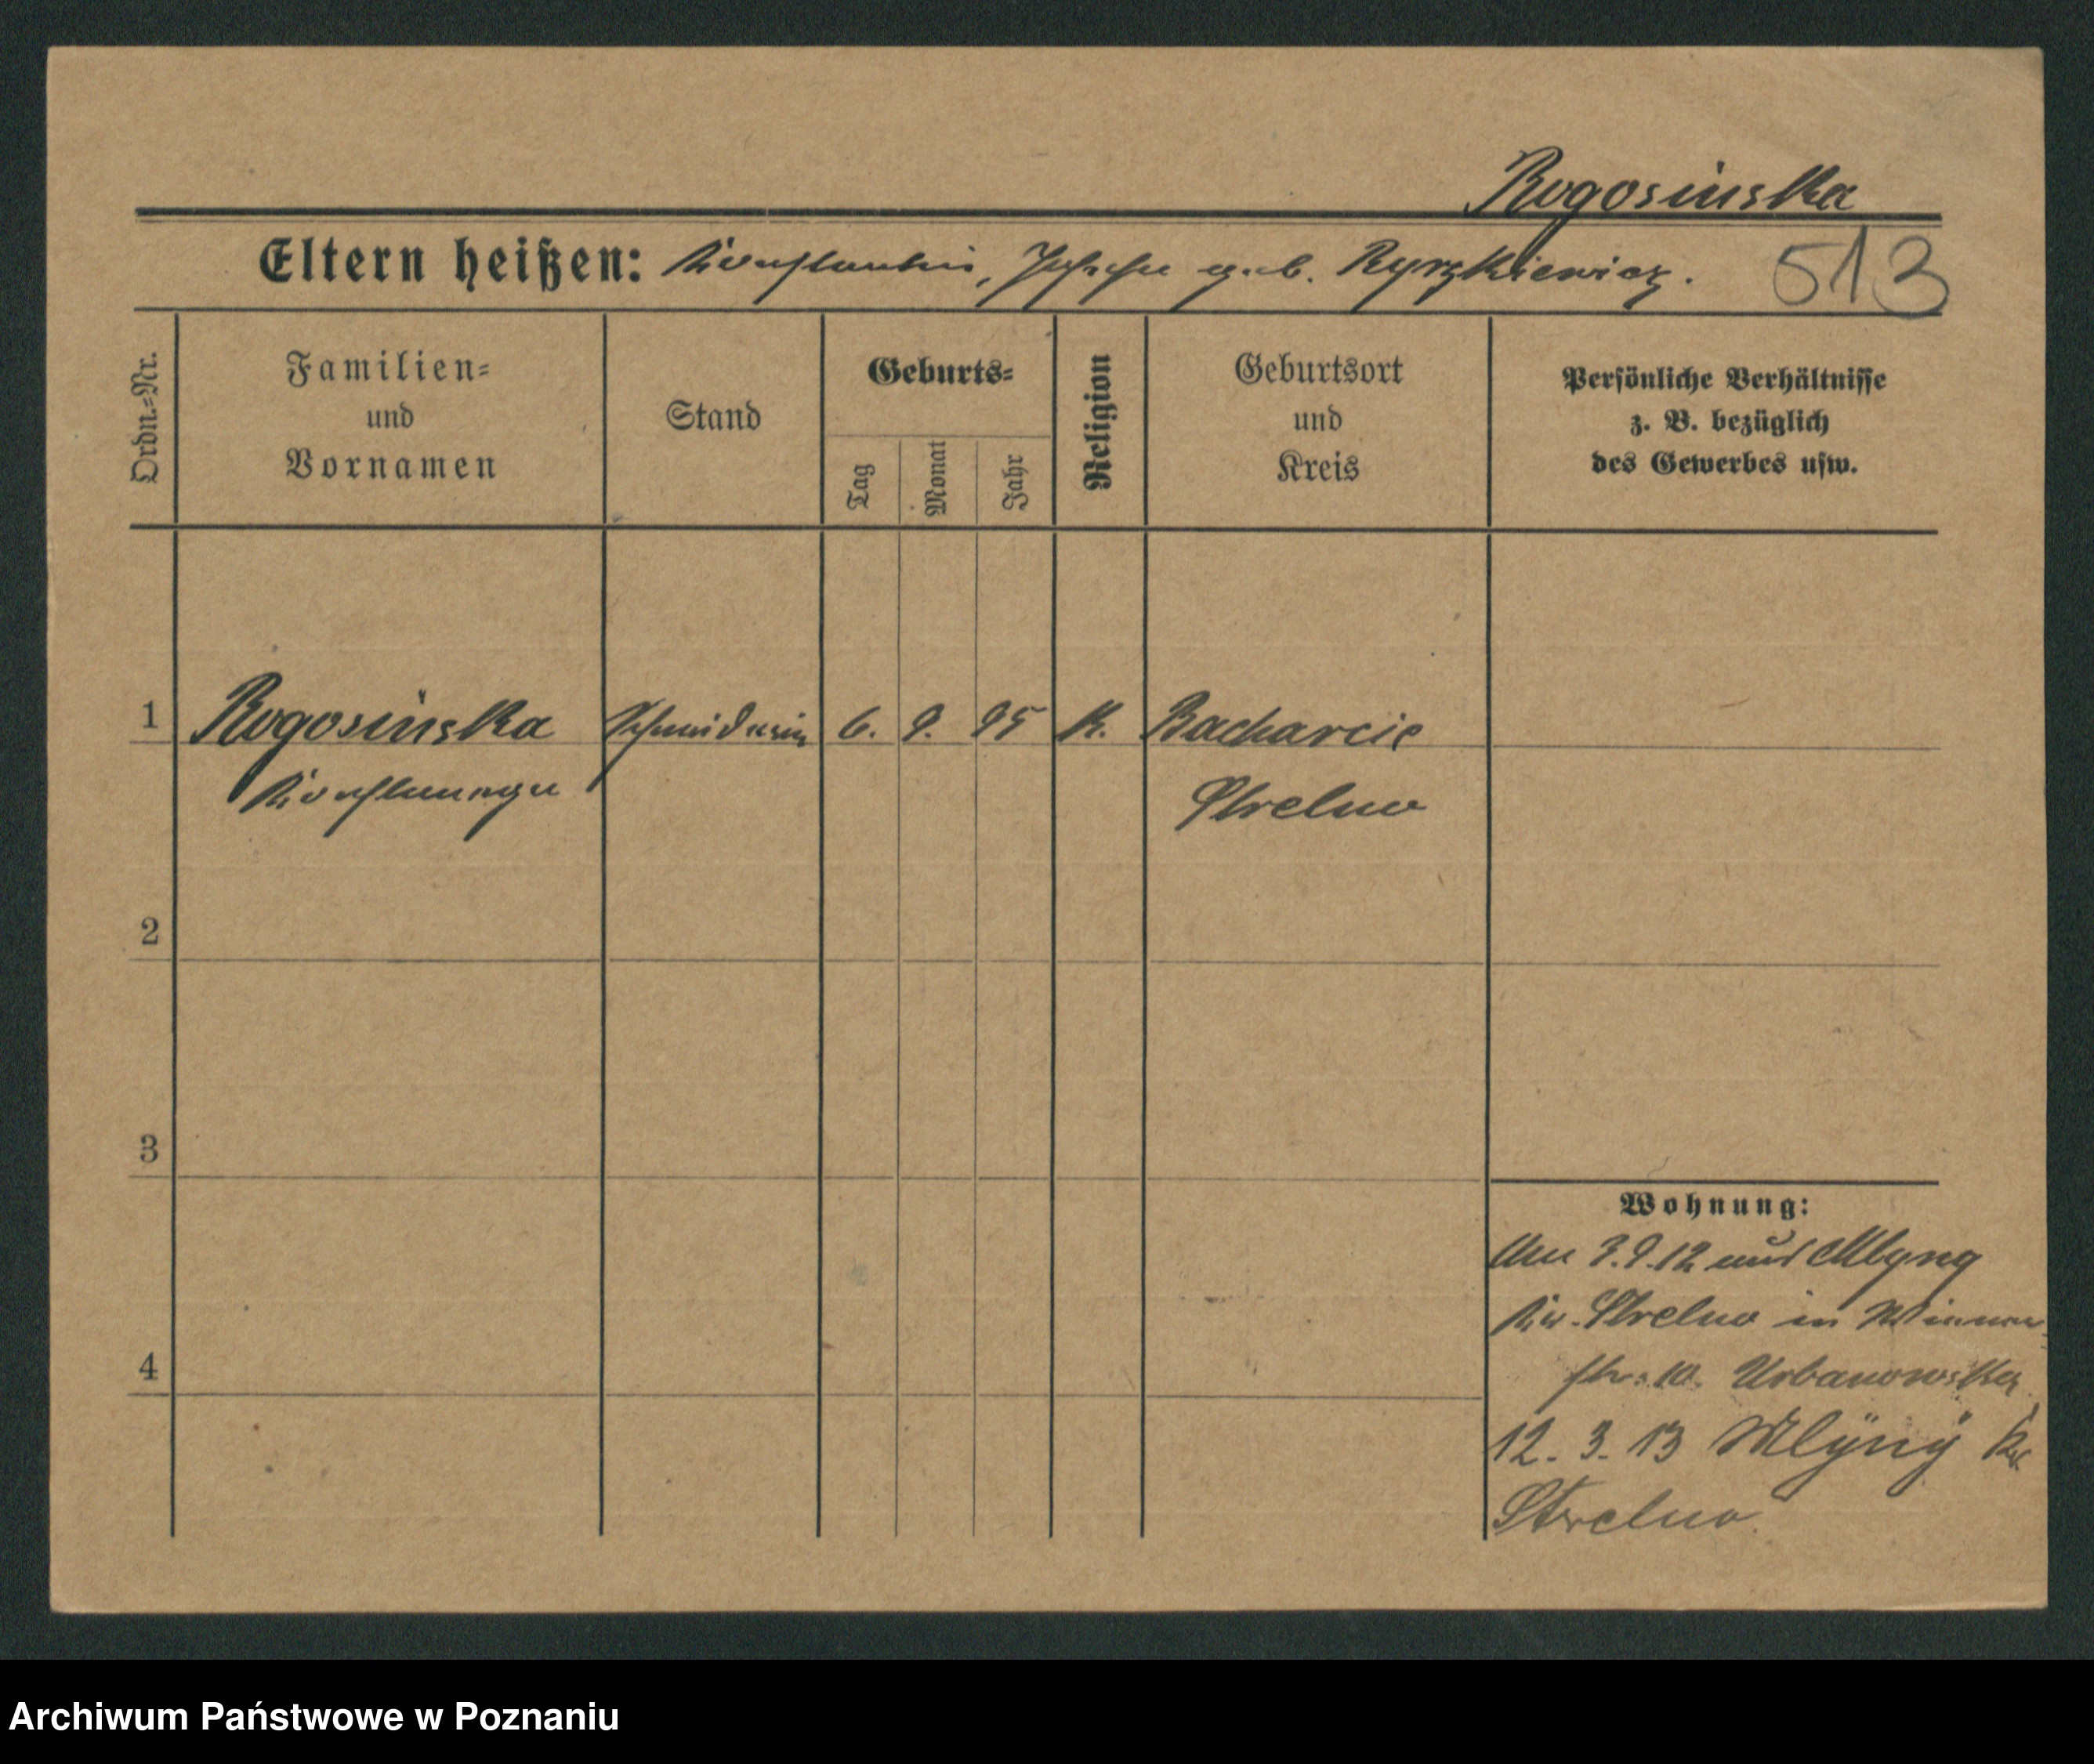 Rogosinska
Eltern heißen: Konstantin, geb. Ryrzkiewicz.
513
Ordn.=Nr.
Familien=
und
Vornamen
Stand
Geburts=
Tag
Monat
Jahr
Religion
Geburtsort
und
Kreis
Persönliche Verhältnisse
z. B. bezüglich
des Gewerbes usw.
1 Rogosinska Schneiderin 6. 9. 95 K. Bacharcie
Strelno
2
3
4
Wohnung:
9.12 aus Mlyny
Kr. Strelno in
str. 10. Urbanowska
12. 3. 13 Mlyny Kr
Strelno
Archiwum Państwowe w Poznaniu